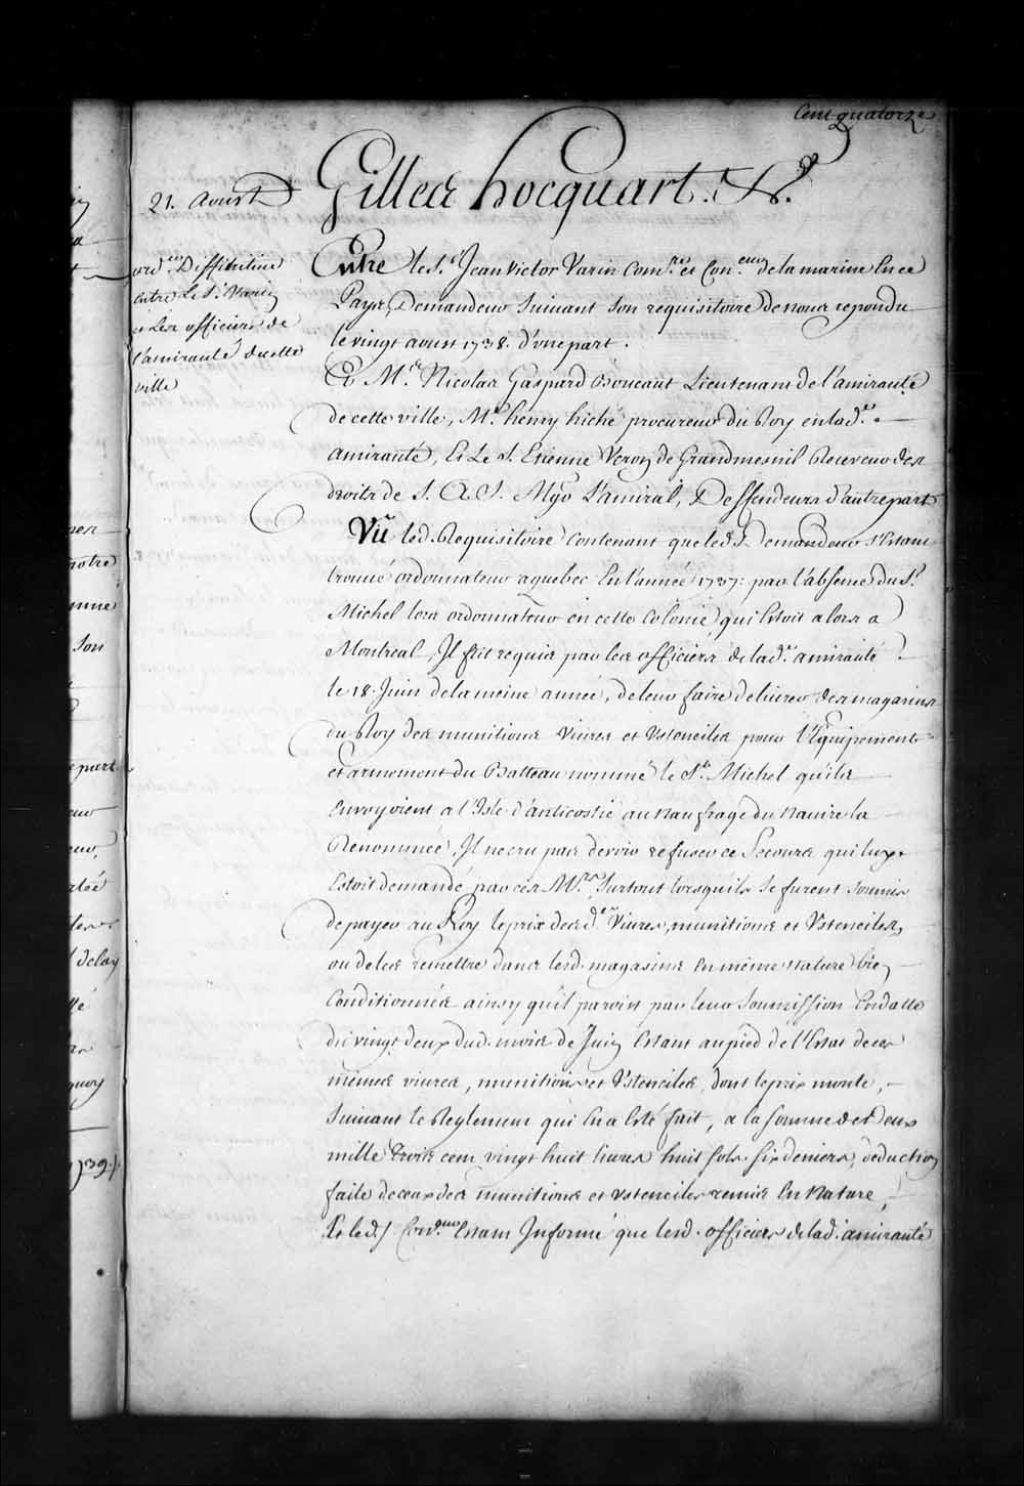 Cent quatorze
21. Aoust
Gilles hocquart. &c.
ord.ce Diffinitive
entre Le S.r Varin
et Les officiers de
l'amirauté de cette
ville
Entre le S.r Jean Victor Varin Com.re et Con.eur de la marine En ce
Pays, Demandeur Suivant Son requisitoire de nous repondu
le vingt aoust 1738. d'une part.
Et M.e Nicolas Gaspard Boucaut Lieutenant de l'amirauté
de cette ville, M.e henry hiché procureur du Roy en lad.e
amirauté, Et Le S. Etienne Veron de Grandmesnil Receveur des
droits de S. A. S. Mgr L'amiral, Deffendeurs d'autre part
Vû led. Requisitoire Contenant que led. S. Demandeur S'Estant
trouvé ordonnateur a quebec En l'année 1737. par l'absence du S.r
Michel lors ordonnateur en cette Colonie, qui Estoit alors a
Montreal, Il fut requis par les officiers de lad.e amirauté
le 18. Juin de la meme année, de leur faire delivrer des magasins
du Roy des munitions Vivres et Ustenciles pour l'Equipement
et armement du Batteau nommé le S.t Michel qu'ils
Envoyoient a l'Isle d'anticostie au naufrage du Navire la
Renommée, Il ne cru pas devoir refuser ce Secours qui luy
Estoit demandé par ces M.rs Surtout lorsquils Se furent Soumis
de payer au Roy le prix desd. Vivres, munitions et Ustenciles,
ou de les remettre dans lesd. magasins En même Nature bien
Conditionnés ainsy qu'il paroist par leur Soumission En datte
du vingt deux dud. mois de Juin Estant au pied de l'Estat de ces
mêmes vivres, munitions et Ustenciles, dont le prix monte,
Suivant le Reglement qui En a Esté fait, a la Somme de Deux
mille trois cent vingt huit livres huit sols six deniers, deduction
faite de ceux des munitions et ustenciles remis En Nature,
Et led. S. Estant Informé que lesd. officiers de lad. amirauté